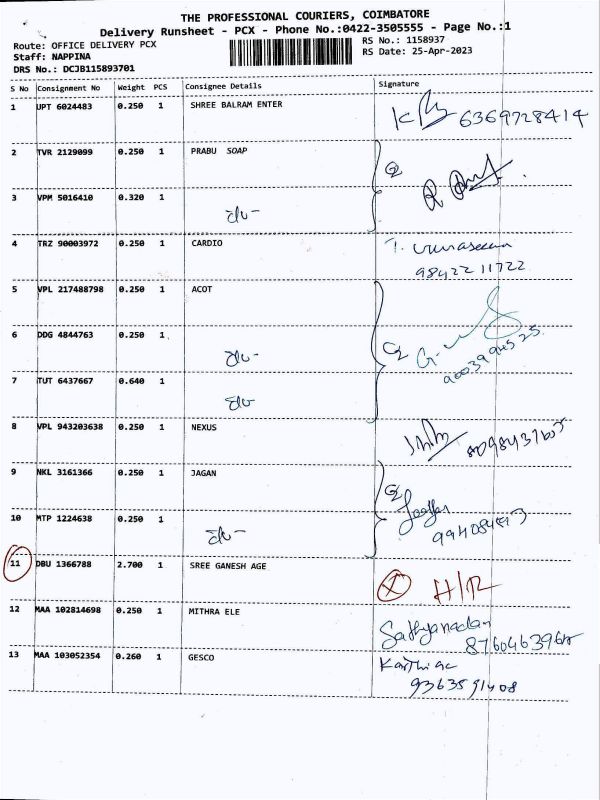 THE PROFESSIONAL COURIERS, COIMBATORE
Delivery Runsheet - PCX - Phone No.:0422-3505555 - Page No.:1
Route: OFFICE DELIVERY PCX
RS No.: 1158937
Staff: NAPPINA
RS Date: 25-Apr-2023
DRS No.: DCJB115893701
S No Consignment No Weight PCS Consignee Details Signature
1 UPT 6024483 0.250 1 SHREE BALRAM ENTER 6369728414
2 TVR 2129099 0.250 1 PRABU SOAP
3 VPM 5016410 0.320 1
4 TRZ 90003972 0.250 1 CARDIO
98422 11722
5 VPL 217488798 0.250 1 ACOT
6 DDG 4844763 0.250 1
7 TUT 6437667 0.640 1
8 VPL 943203638 0.250 1 NEXUS
9 NKL 3161366 0.250 1 JAGAN
10 MTP 1224638 0.250 1
11 DBU 1366788 2.700 1 SREE GANESH AGE
12 MAA 102814698 0.250 1 MITHRA ELE
13 MAA 103052354 0.260 1 GESCO
9363591408